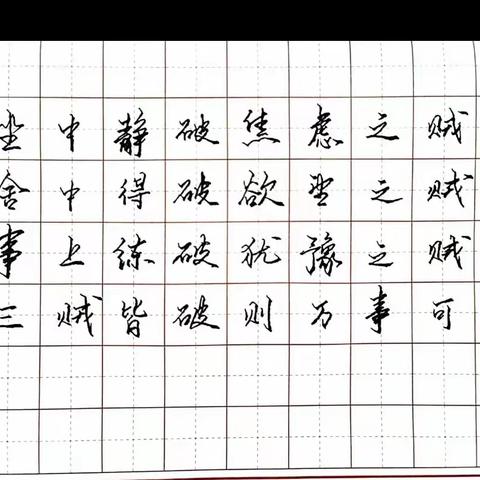 坐中静破焦虑之贼
舍中得破欲望之贼
事上练破犹豫之贼
三贼皆破则万事可